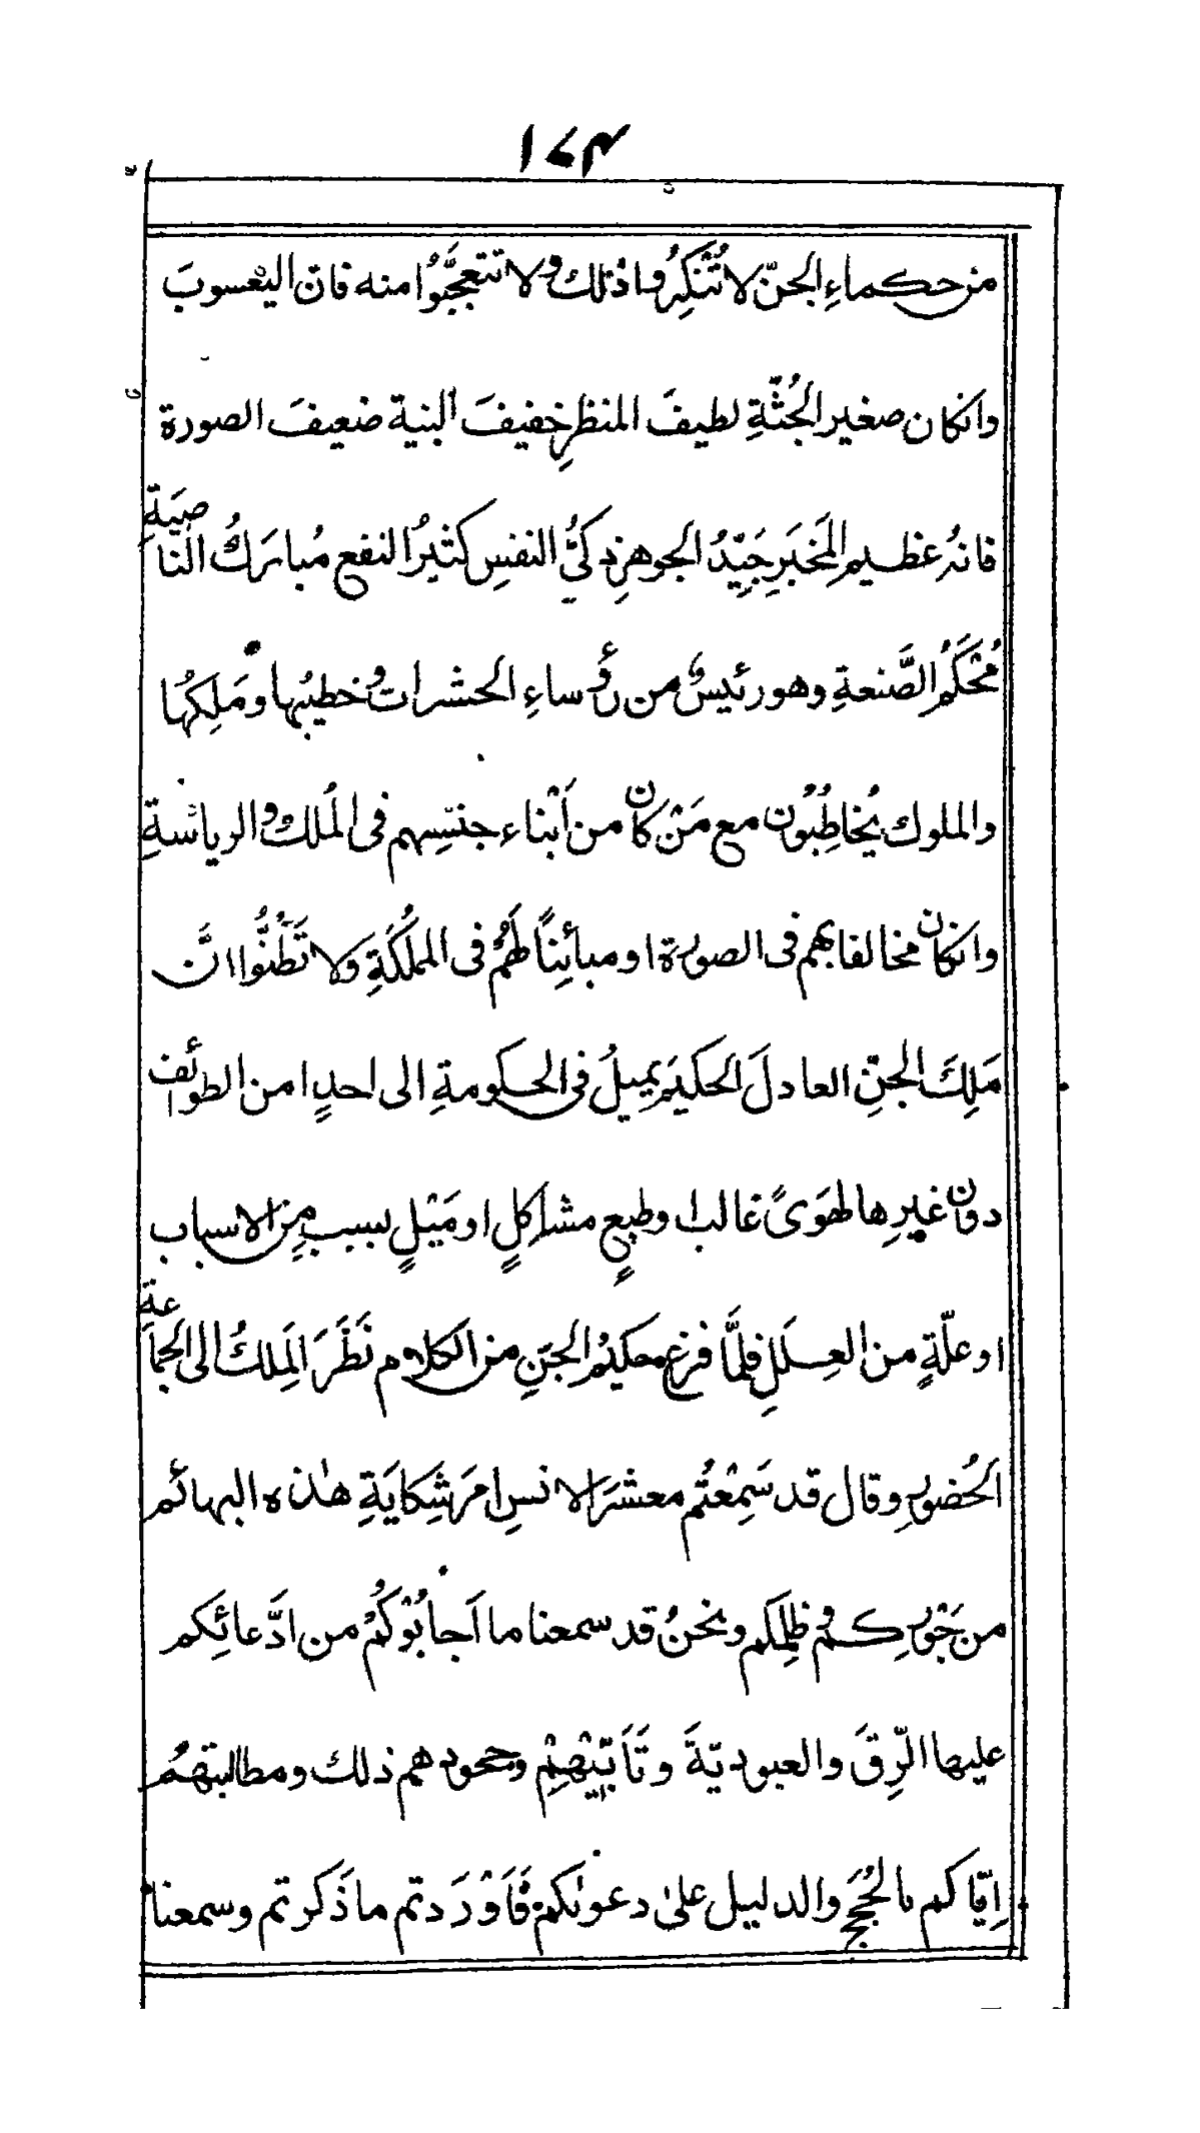 ١٧٣
من حكماءِ الجنّ لا تُنْكِرُوا ذٰلك ولا تتعجَّبُوْا منه فان اليَعْسوبَ
وانكان صغير الجُثّةِ لطيفَ المنظرِ خفيفَ البنية ضعيفَ الصورة
فانهُ عظيم المَخْبَرِ جَيِّدُ الجوهرِ ذكيُّ النفسِ كثيرُ النفعِ مُبارَكُ الناصِيَةِ
مُحْكَمُ الصَّنعةِ وهو رئيسٌ من رُؤساءِ الحشراتِ وخطيبُها ومَلِكُها
والملوك يُخاطِبُوْن مع مَنْ كان من اَبْناء جنسِهم فى المُلك والرياسَةِ
وانكان مخالفا بهم فى الصورة او مبائِنًا لَهُمْ فى المملكَةِ وَلا تَظُنُّوا انَّ
مَلِكَ الجنِّ العادلَ الحكيمَ يميلُ فى الحكومةِ الى احدٍ من الطوائف
دون غيرِها لهَوَىً غالب او طبعٍ مشاكِلٍ او مَيْلٍ لسبب مِنَ الاسباب
او علّةٍ من العِلَلِ فلمَّا فرغ حكيمُ الجنِّ من الكلام نَظَرَ المَلِكُ الى الجماعةِ
الحُضورِ وقال قد سَمِعْتُم معشرَ الانسِ امرَ شِكايَةِ هٰذه البهائم
من جَوْرِكُم وظلمِكم ونحنُ قد سمعنا ما اَجابُوْكُمْ من ادَّعائِكم
عليها الرِّقَّ والعبوديّةَ وتَأَبِّيْهِمْ وجحودهم ذلك ومطالبتهم
اِيّاكم بالحُجَجِ والدليل علىٰ دعوٰىكم فَاَوْرَدتم ما ذَكرتم وسمعنا